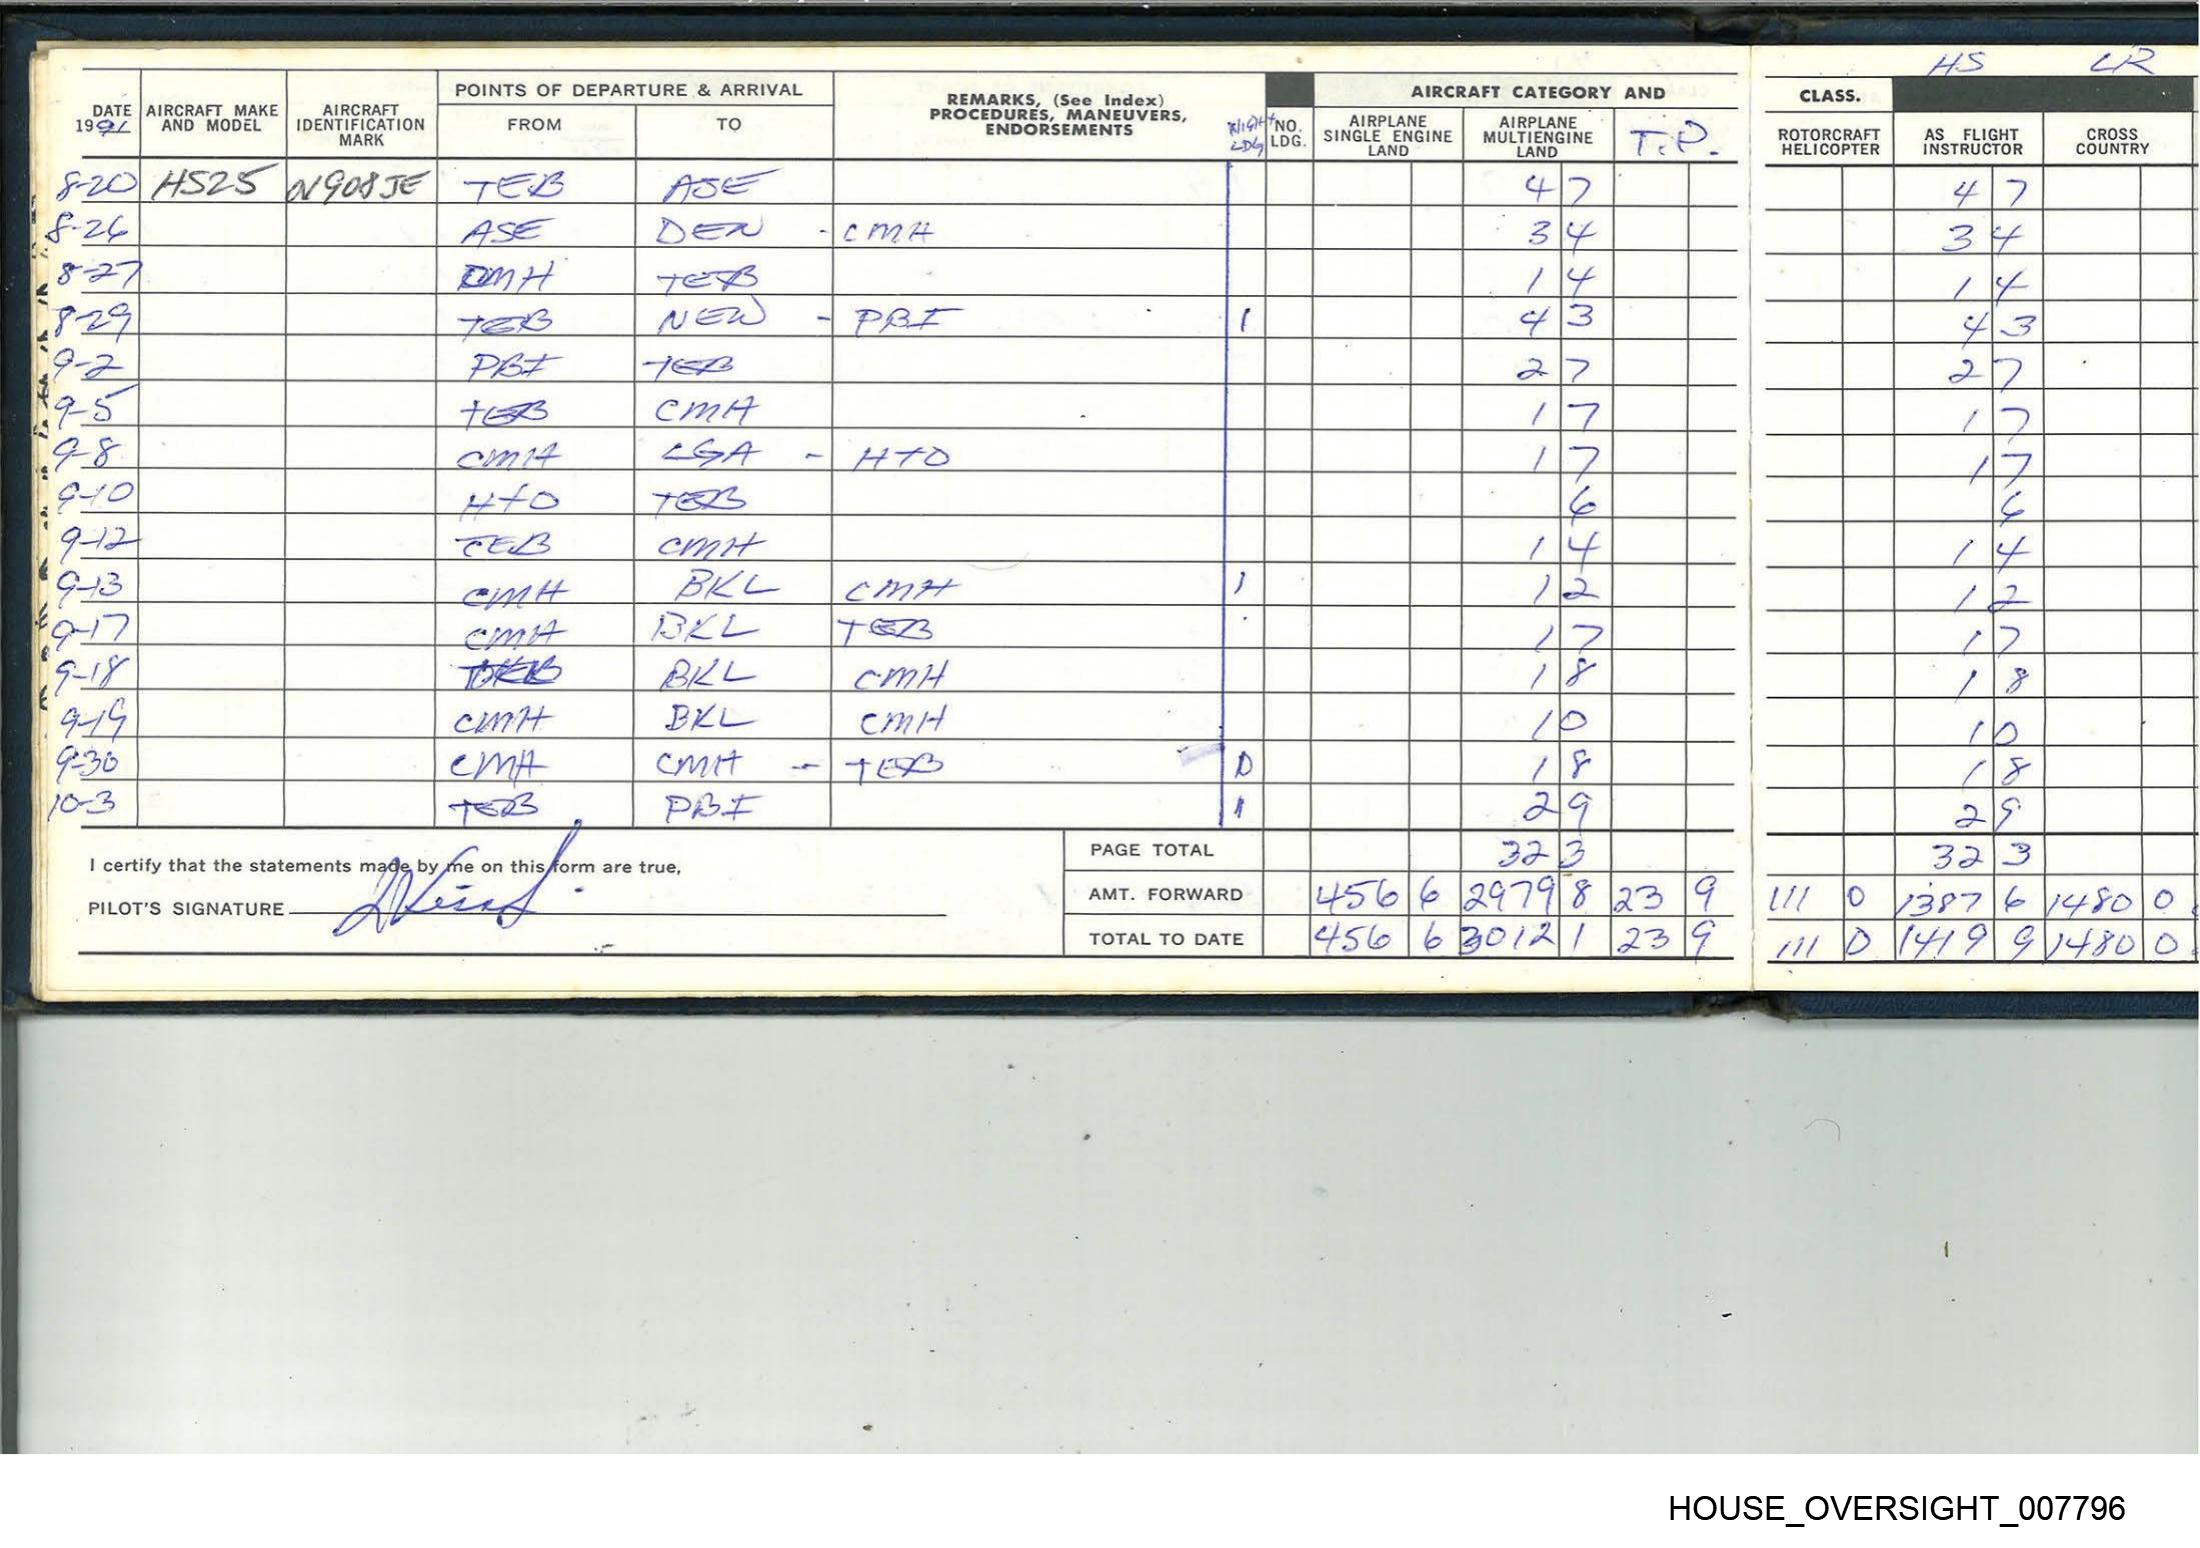 HS LR
DATE 1991 AIRCRAFT MAKE AND MODEL AIRCRAFT IDENTIFICATION MARK POINTS OF DEPARTURE & ARRIVAL FROM TO REMARKS, (See Index) PROCEDURES, MANEUVERS, ENDORSEMENTS NIGHT LDG NO. LDG. AIRCRAFT CATEGORY AND AIRPLANE SINGLE ENGINE LAND AIRPLANE MULTIENGINE LAND T.P. CLASS. ROTORCRAFT HELICOPTER AS FLIGHT INSTRUCTOR CROSS COUNTRY
8-20 HS25 N908JE TEB ASE 4 7 4 7
8-26 ASE DEN - CMH 3 4 3 4
8-27 CMH TEB 1 4 1 4
8-29 TEB NEW - PBI 1 4 3 4 3
9-2 PBI TEB 2 7 2 7
9-5 TEB CMH 1 7 1 7
9-8 CMH LGA - HTO 1 7 1 7
9-10 HTO TEB 6 6
9-12 TEB CMH 1 4 1 4
9-13 CMH BKL CMH 1 1 2 1 2
9-17 CMH BKL TEB 1 7 1 7
9-18 BKL CMH 1 8 1 8
9-19 CMH BKL CMH 1 0 1 0
9-30 CMH CMH - TEB 0 1 8 1 8
10-3 TEB PBI 1 2 9 2 9
I certify that the statements made by me on this form are true,
PILOT'S SIGNATURE
PAGE TOTAL 32 3 32 3
AMT. FORWARD 456 6 2979 8 23 9 111 0 1387 6 1480 0
TOTAL TO DATE 456 6 3012 1 23 9 111 0 1419 9 1480 0
HOUSE_OVERSIGHT_007796